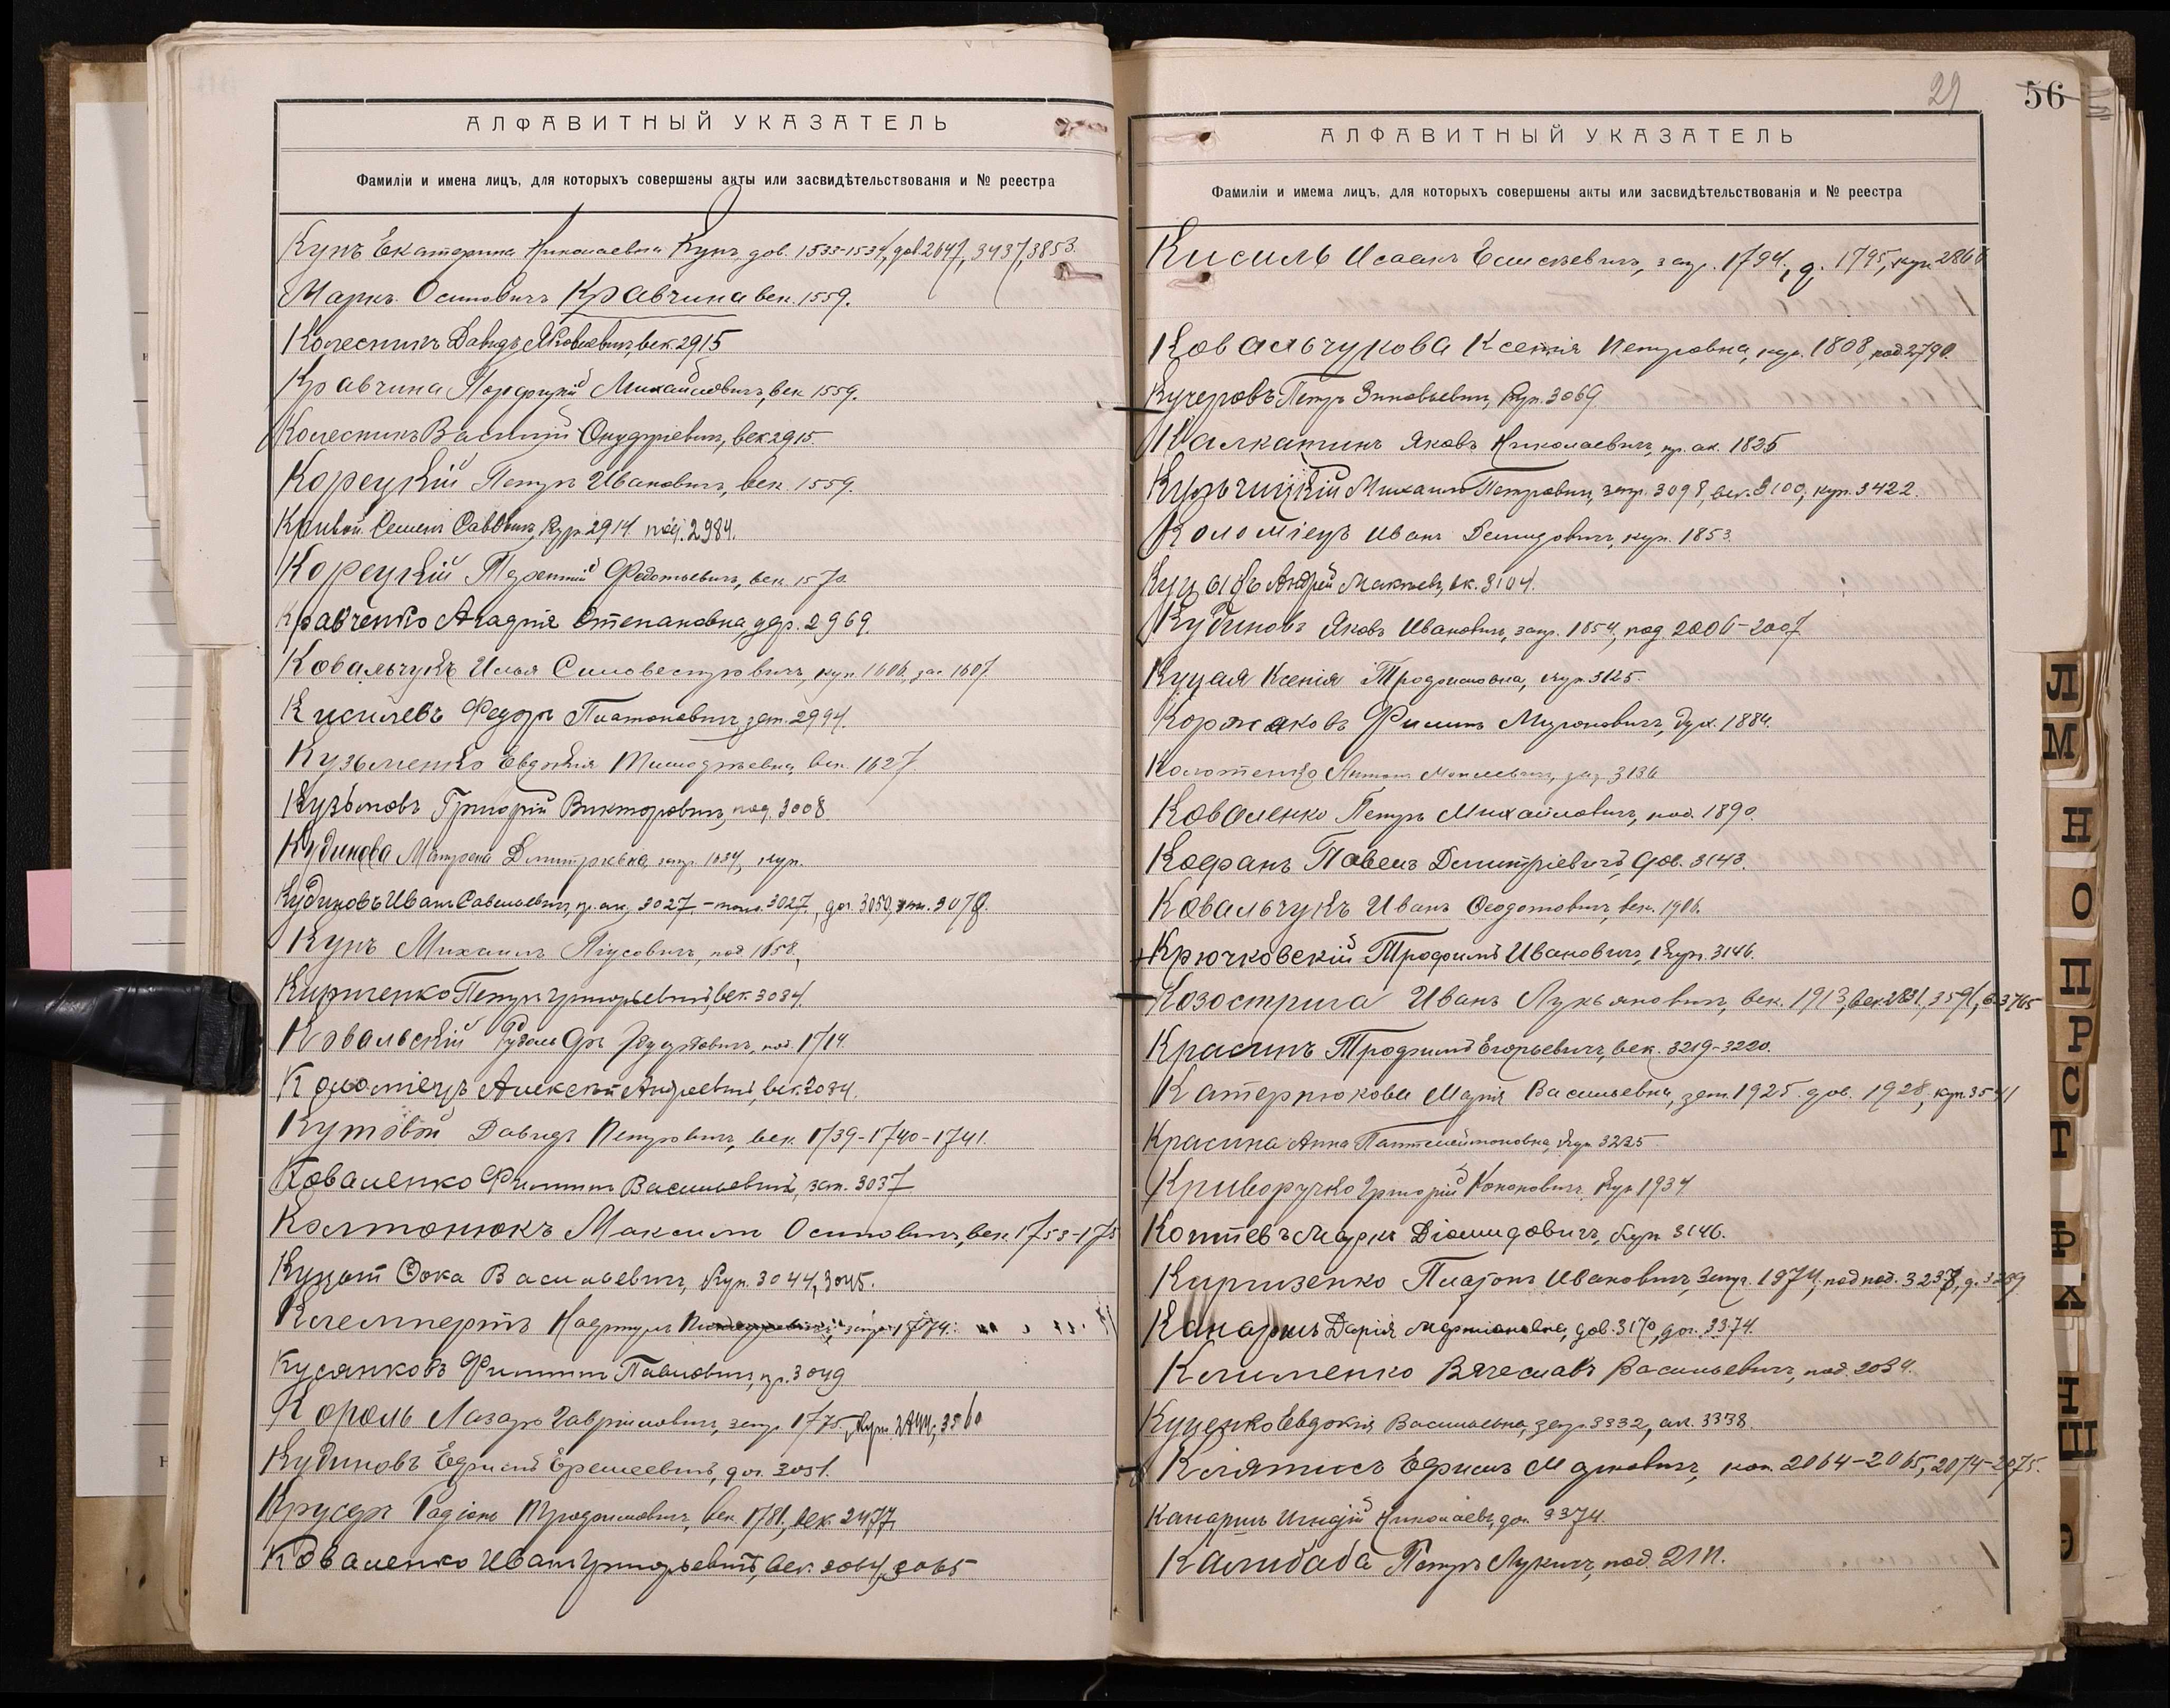 АЛФАВИТНЫЙ УКАЗАТЕЛЬ
Фамиліи и имена лицъ, для которыхъ совершены акты или засвидѣтельствованія и № реестра
Кунъ Екатерина Николаевна Кунъ, дов. 1533-1534, дов. 2647, 3437, 3853.
Маркъ Осиповичъ Кравчина век. 1559.
Колесникъ Давидъ Яковлевичъ, век. 2915
Кравчина Порфирій Михайловичъ, век. 1559.
Колесникъ Василій Онуфріевичъ, век. 2915.
Корецкій Петръ Ивановичъ, век. 1559.
Семенъ Саввичъ, 2914 2984.
Корецкій Терентій Федотьевичъ, век. 1570.
Кравченко Агафія Степановна, 2969.
Ковальчукъ Илья Силовестровичъ, куп. 1606, 1607.
Киселевъ Федоръ Платоновичъ, 2994.
Кузьменко Евдокія Тимофѣевна, век. 1627.
Кузьмовъ Григорій Викторовичъ, под. 3008.
Кудинова Матрена Дмитріевна, 1634, куп.
Кудиновъ Иванъ Савельевичъ, пр. ак. 3027, 3027, дог. 3050, 3078.
Кунъ Михаилъ Піусовичъ, под. 1658.
Кириченко Петръ Григорьевичъ, век. 3034.
Ковальскій Рудольфъ Эдуардовичъ, под. 1714.
Коломіецъ Алексѣй Андреевичъ, век. 2034.
Кутовой Давидъ Петровичъ, век. 1739-1740-1741.
Коваленко Филиппъ Васильевичъ, зап. 3037
Колтонюкъ Максимъ Осиповичъ, век. 1758-175
Куцый Фока Васильевичъ, Куп. 3044, 3045.
Клемпертъ 1774.
Кусянковъ Филиппъ Павловичъ, 3049
Король Лазарь Гавриловичъ, 1775, 3560
Кудиновъ Ефимъ Еремеевичъ, дог. 3051.
Крусеръ Радіонъ Трофимовичъ, век. 1781, век. 2477
Коваленко Иванъ Григорьевичъ, век. 3064, 3065
29
56
АЛФАВИТНЫЙ УКАЗАТЕЛЬ
Фамиліи и имема лицъ, для которыхъ совершены акты или засвидѣтельствованія и № реестра
Кисиль Исаакъ Елисѣевичъ, 1794, д. 1795, куп. 2868
Ковальчукова Ксенія Петровна, 1808, под. 2790.
Кучеровъ Петръ Зиновьевичъ, Куп. 3069
Калкатинъ Яковъ Николаевичъ, пр. ак. 1825
Кульчицкій Михаилъ Петровичъ, 3098, век. 3100, куп. 3422.
Коломіецъ Иванъ Демидовичъ, куп. 1853.
Куцывъ Андрей 3104.
Кудиновъ Яковъ Ивановичъ, 1854, под. 2006-2007
Куцая Ксенія Трофимовна, Куп. 3125.
Коржаковъ Филипъ Мироновичъ, дух. 1884.
Колотенко Антонъ 3136
Коваленко Петръ Михайловичъ, под. 1890.
Кофанъ Павелъ Димитріевичъ, дов. 3143.
Ковальчукъ Иванъ Феодотовичъ, век. 1906.
Крючковскій Трофимъ Ивановичъ, Куп. 3146.
Козострига Иванъ Лукьяновичъ, век. 1913, век. 2831, 3591, в. 3765
Красинъ Трофимъ Егорьевичъ, век. 3219-3220.
Катерлюкова Марія Васильевна, 1925. дов. 1928, куп. 3541
Красина Анна Пантелеймоновна, Куп. 3225.
Криворучко Григорій Кононовичъ, Куп. 1934
Коптевъ Маркъ Діомидовичъ, Куп. 3146.
Киризенко Платонъ Ивановичъ, 1974, под. 3238, д. 3239
Канаришъ Дарія Мартіановна, дов. 3170, дог. 3374.
Клименко Вячеславъ Васильевичъ, под. 2034.
Куценко Евдокія Васильевна, 3332, ак. 3338.
Клятисъ Ефимъ Марковичъ, коп. 2064-2065, 2074-2075.
Канаришъ Николаевъ, дог. 3374
Калибаба Петръ Лукичъ, под. 2111.
Л
М
Н
О
П
Р
С
Т
Ф
Х
Ш
Э